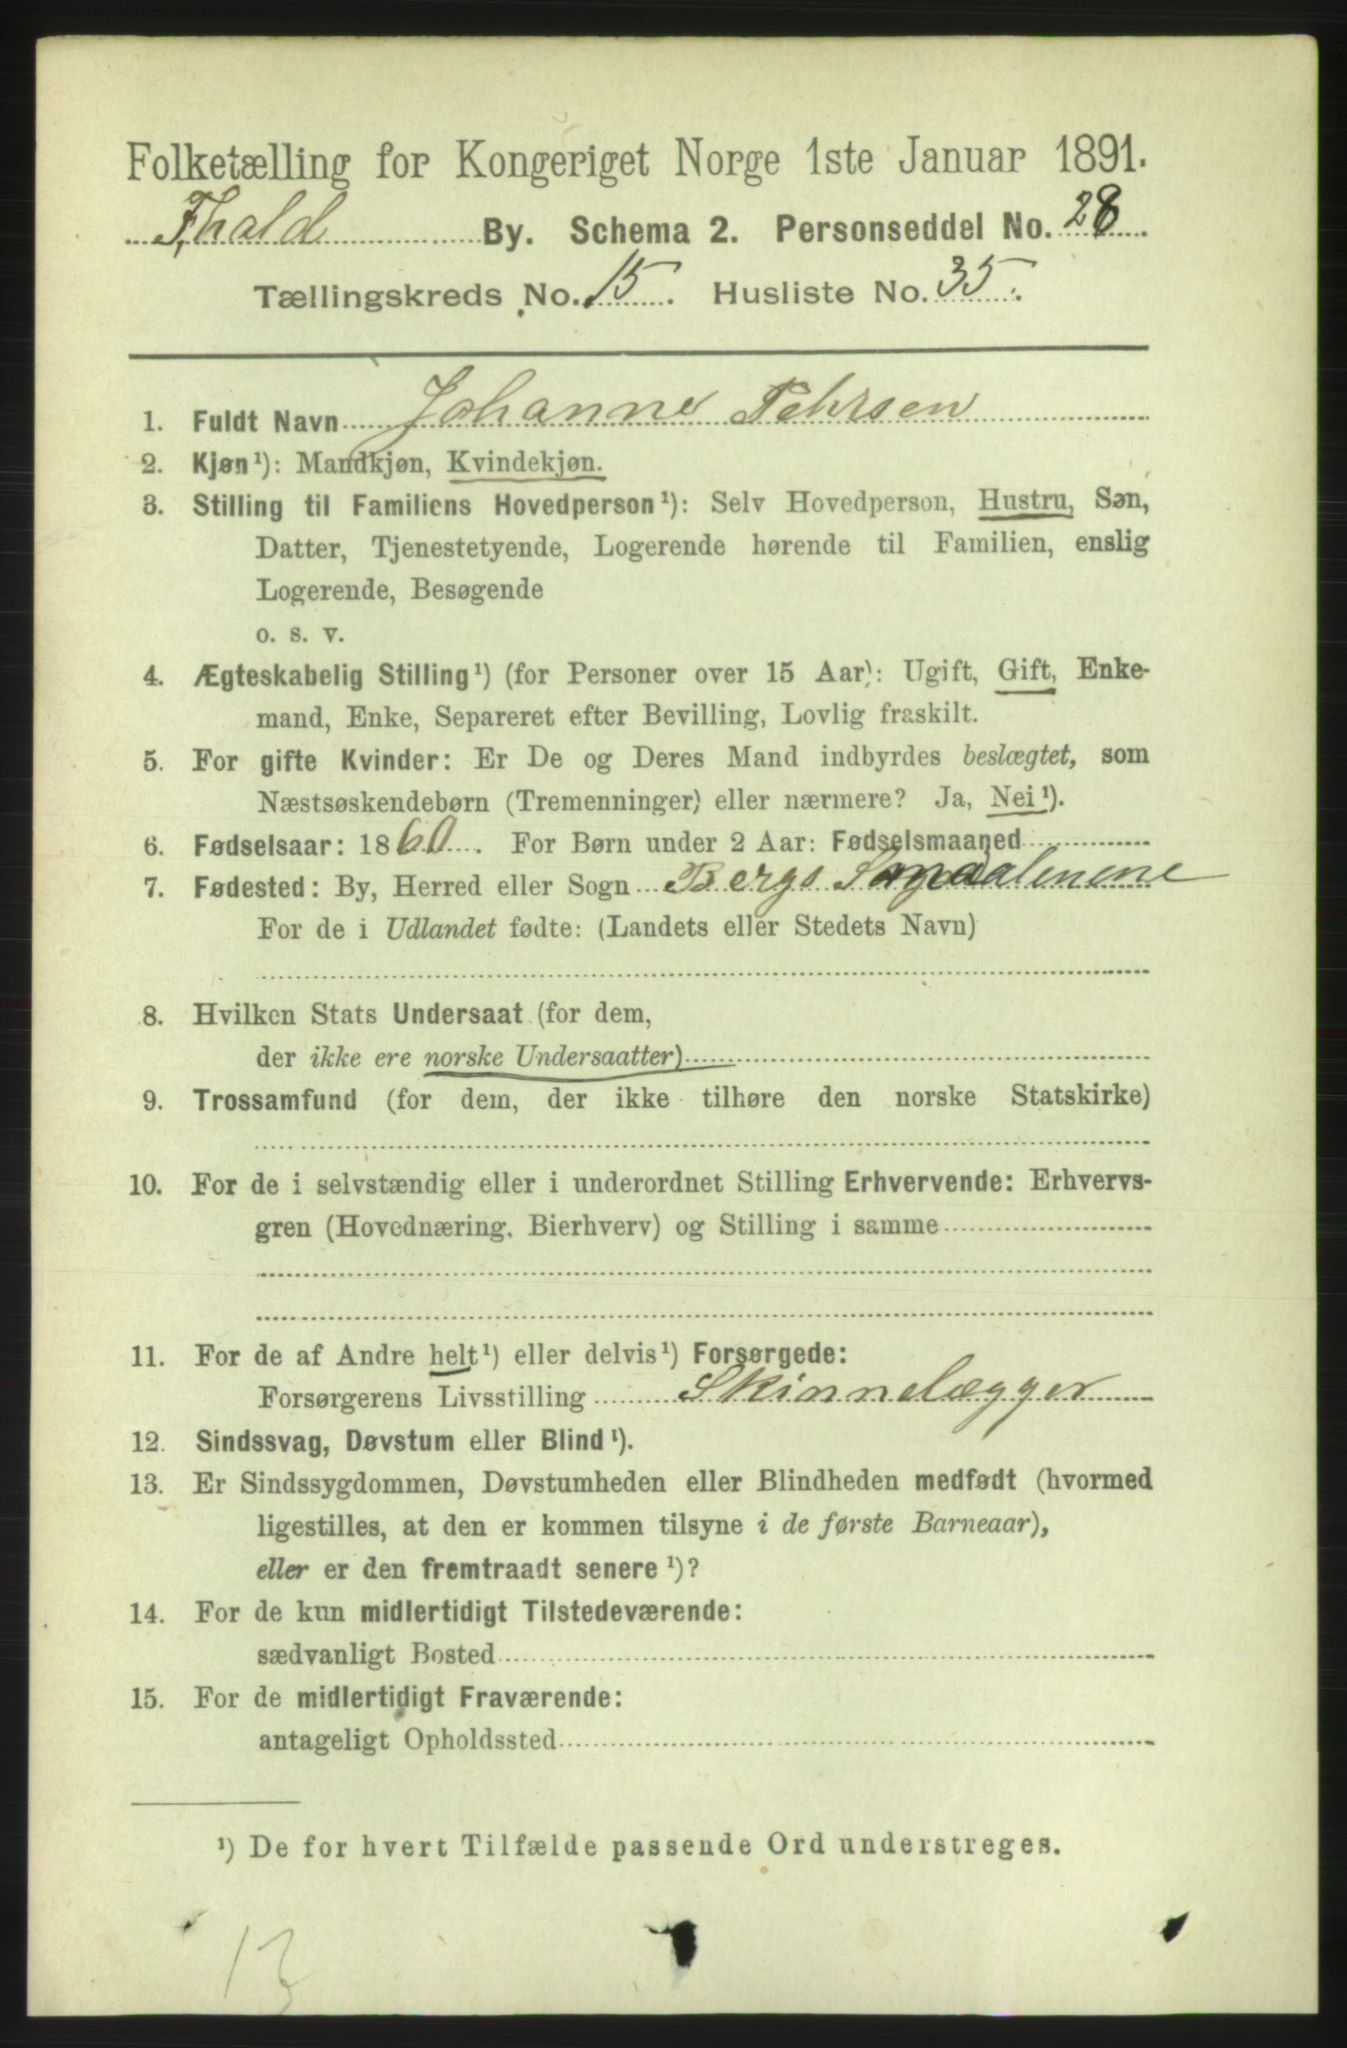 Folketælling for Kongeriget Norge 1ste Januar 1891.
Fhald By. Schema 2. Personseddel No. 28.
Tællingskreds No. 15. Husliste No. 35.
1. Fuldt Navn Johanne Pehrsen
2. Kjøn¹): Mandkjøn, Kvindekjøn.
3. Stilling til Familiens Hovedperson¹): Selv Hovedperson, Hustru, Søn,
Datter, Tjenestetyende, Logerende hørende til Familien, enslig
Logerende, Besøgende
o. s. v.
4. Ægteskabelig Stilling¹) (for Personer over 15 Aar): Ugift, Gift, Enke-
mand, Enke, Separeret efter Bevilling, Lovlig fraskilt.
5. For gifte Kvinder: Er De og Deres Mand indbyrdes beslægtet, som
Næstsøskendebørn (Tremenninger) eller nærmere? Ja, Nei¹).
6. Fødselsaar: 1860. For Børn under 2 Aar: Fødselsmaaned
7. Fødested: By, Herred eller Sogn Bergs
For de i Udlandet fødte: (Landets eller Stedets Navn)
8. Hvilken Stats Undersaat (for dem,
der ikke ere norske Undersaatter)
9. Trossamfund (for dem, der ikke tilhøre den norske Statskirke)
10. For de i selvstændig eller i underordnet Stilling Erhvervende: Erhvervs-
gren (Hovednæring, Bierhverv) og Stilling i samme
11. For de af Andre helt¹) eller delvis¹) Forsørgede:
Forsørgerens Livsstilling Skinnelægger
12. Sindssvag, Døvstum eller Blind¹).
13. Er Sindssygdommen, Døvstumheden eller Blindheden medfødt (hvormed
ligestilles, at den er kommen tilsyne i de første Barneaar),
eller er den fremtraadt senere¹)?
14. For de kun midlertidigt Tilstedeværende:
sædvanligt Bosted
15. For de midlertidigt Fraværende:
antageligt Opholdssted
¹) De for hvert Tilfælde passende Ord understreges.
13